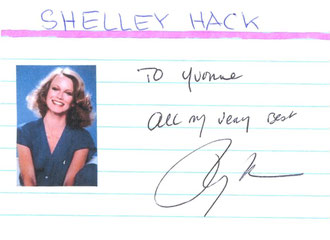 SHELLEY HACK
To Yvonne
All my very best